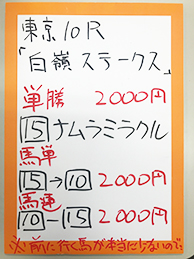 東京10R
「白嶺ステークス」
単勝 2000円
15 ナムラミラクル
馬単
15→10 2000円
馬連
10-15 2000円
※前に行く馬が本当に少ないので